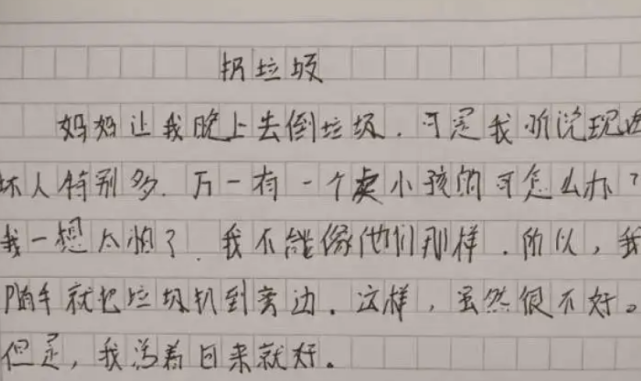 扔垃圾
妈妈让我晚上去倒垃圾.可是我听说现
坏人特别多.万一有一个卖小孩的可怎么办?
我一想太怕了.我不能像他们那样.所以,我
随手就把垃圾扒到旁边.这样,虽然很不好。
但是,我活着回来就好。